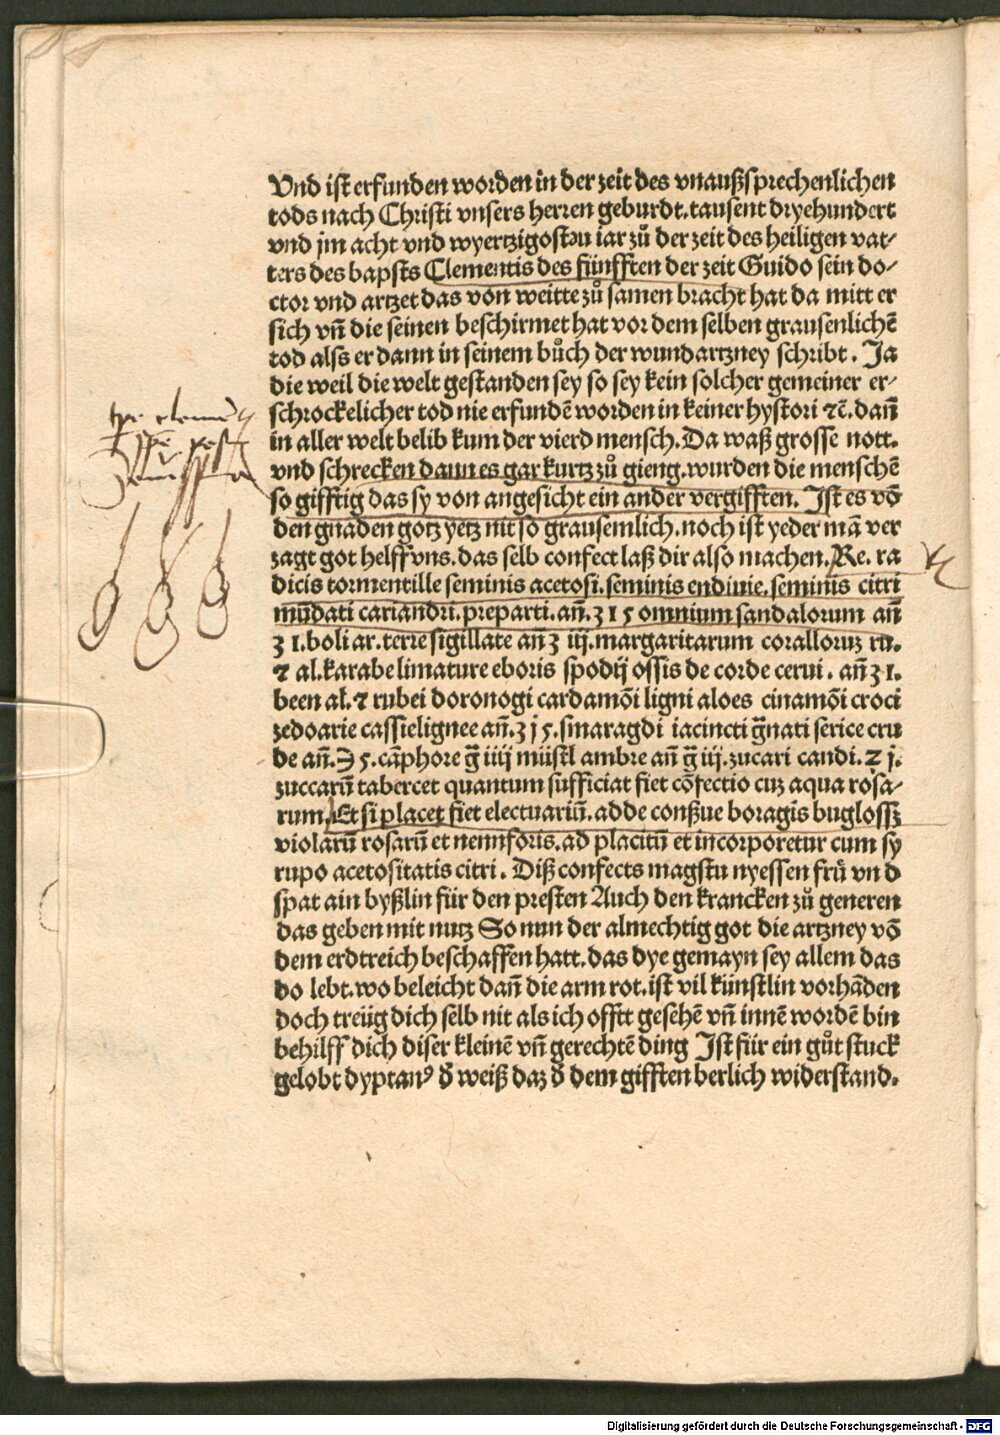 Vnd ist erfunden worden in der zeit des vnaußsprechenlichen
tods nach Christi vnsers herren geburdt. tausent dryehundert
vnd jm acht vnd wyertzigosteu iar zů der zeit des heiligen vat⸗
ters des bapsts Clementis des fünfften der zeit Guido sein do⸗
ctor vnd artzet das von weitte zů samen bracht hat da mitt er
sich vn̄ die seinen beschirmet hat vor dem selben grausenlichē
tod alss er dann in seinem bůch der wundartzney schribt. Ja
die weil die welt gestanden sey so sey kein solcher gemeiner er⸗
schrockelicher tod nie erfundē worden in keiner hystori ⁊c̄. dan̄
in aller welt belib kum der vierd mensch. Da waß grosse nott.
vnd schrecken dann es gar kurtz zů gieng. wurden die menschē
so gifftig das sy von angesicht ein ander vergifften. Jst es vō
den gnaden gotz yetz nit so grausemlich. noch ist yeder mā ver
zagt got helff vns. das selb confect laß dir also machen. Re. ra
dicis tormentille seminis acetosi. seminis endiuie. seminis citri
mūdati cariandri. preparti. an̄. ʒ 1 5 omnium sandalorum an̄
ʒ 1. boli ar. terre sigillate an̄ ʒ iij. margaritarum coralloruꝫ ru.
⁊ al. karabe limature eboris spodij ossis de corde cerui. an̄ ʒ 1.
been al. ⁊ rubei doronogi cardamōi ligni aloes cinamōi croci
zedoarie cassielignee an̄. ʒ j 5. smaragdi iacincti ḡnati serice cru
de an̄. ℈ 5. cāphore ḡ iiij müstl ambre an̄ ḡ iij. zucari candi. ⁊ j.
zuccarū tabercet quantum sufficiat fiet cōfectio cuꝫ aqua rosa⸗
rum. Et si placet fiet electuariū. adde conßue boragis buglossꝫ
violarū rosarū et nennforis. ad placitū et incorporetur cum sy
rupo acetositatis citri. Diß confects magstu nyessen frü vn d
spat ain byßlin für den presten Auch den krancken zů generen
das geben mit nutz So nun der almechtig got die artzney vō
dem erdtreich beschaffen hatt. das dye gemayn sey allem das
do lebt. wo beleicht dan̄ die arm rot. ist vil künstlin vorhāden
doch treüg dich selb nit als ich offtt gesehē vn̄ innē wordē bin
behilff dich diser kleinē vn̄ gerechtē ding Jst für ein gůt stuck
gelobt dyptanꝰ ð weiß daz ð dem gifften berlich widerstand.
Digitalisierung gefördert durch die Deutsche Forschungsgemeinschaft - DFG